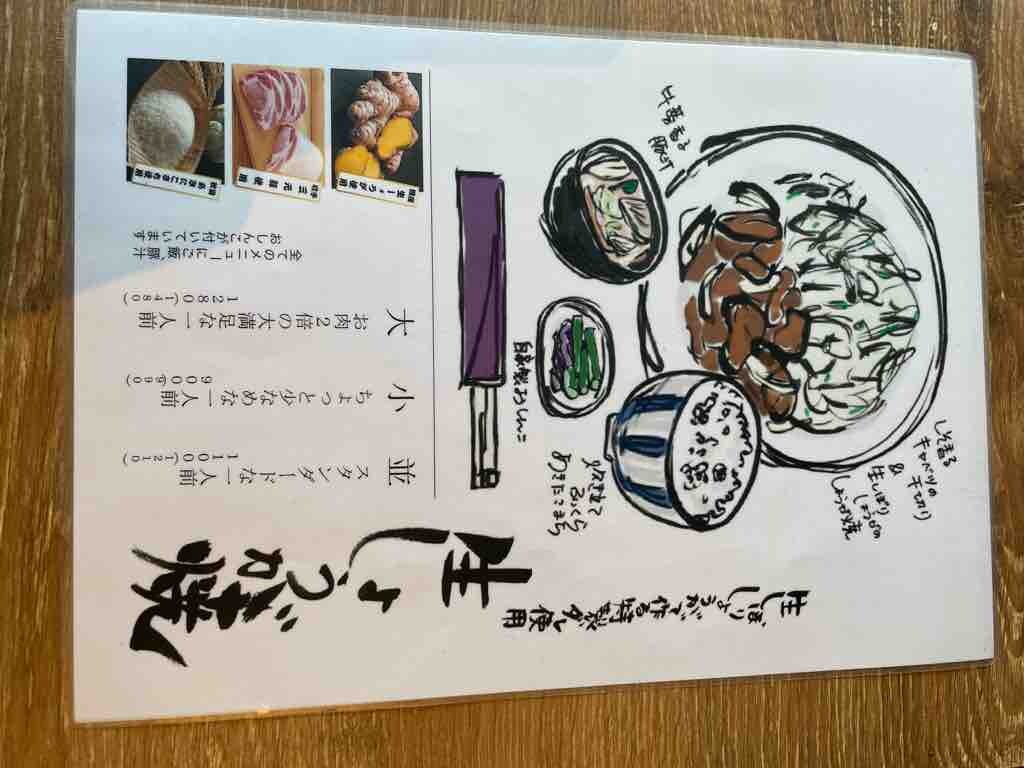 生しぼり
しょうがで作る特製ダレ使用
生しょうが焼
並
スタンダードな一人前
1100(1210)
小
ちょっと少なめな一人前
900(990)
大
お肉2倍の大満足な一人前
1280(1480)
全てのメニューにご飯、豚汁
おしんこが付いています
生しょうが使用
岩手 三元豚使用
あきたこまち使用
しそ香る
キャベツの千切り
&
生しぼり
しょうがの
しょうが焼
牛蒡香る
豚汁
自家製おしんこ
炊き立て
ふっくら
あきたこまち